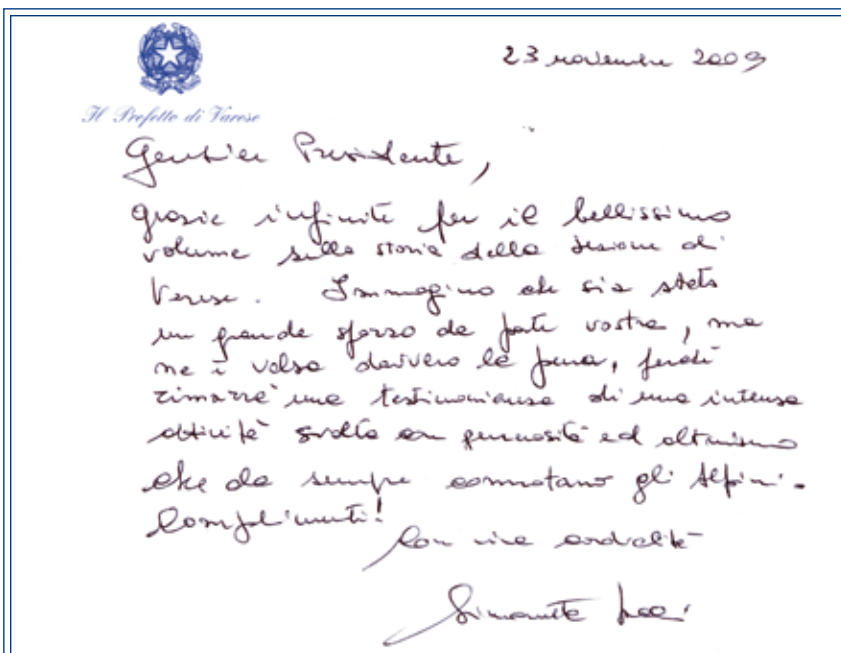 23 novembre 2009
Il Prefetto di Varese
Gentile Presidente,
grazie infinite per il bellissimo
volume sulla storia della sezione di
Varese. Immagino che sia stato
un grande sforzo da parte vostra, ma
ne è valsa davvero la pena, perché
rimarrà una testimonianza di una intensa
attività svolta con generosità ed altruismo
che da sempre connotano gli Alpini.
Complimenti!
Con viva cordialità
Simonetta